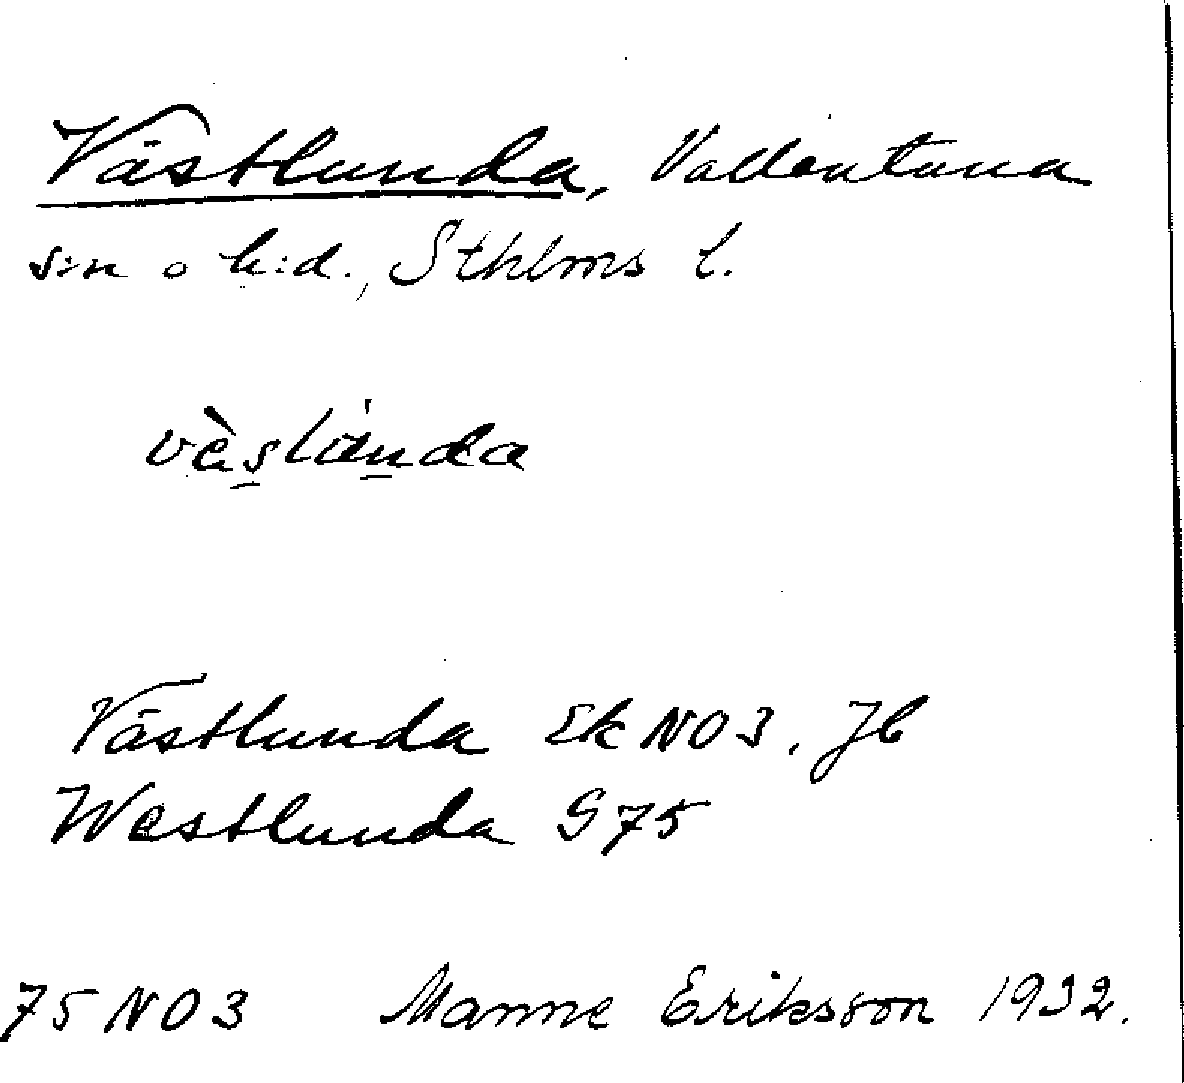 Västlunda, Vallentuna
s:n o h:d., Sthlms l.
Västlunda Ek NO3. Jb
Westlunda G75
75 NO3 Manne Eriksson 1932.